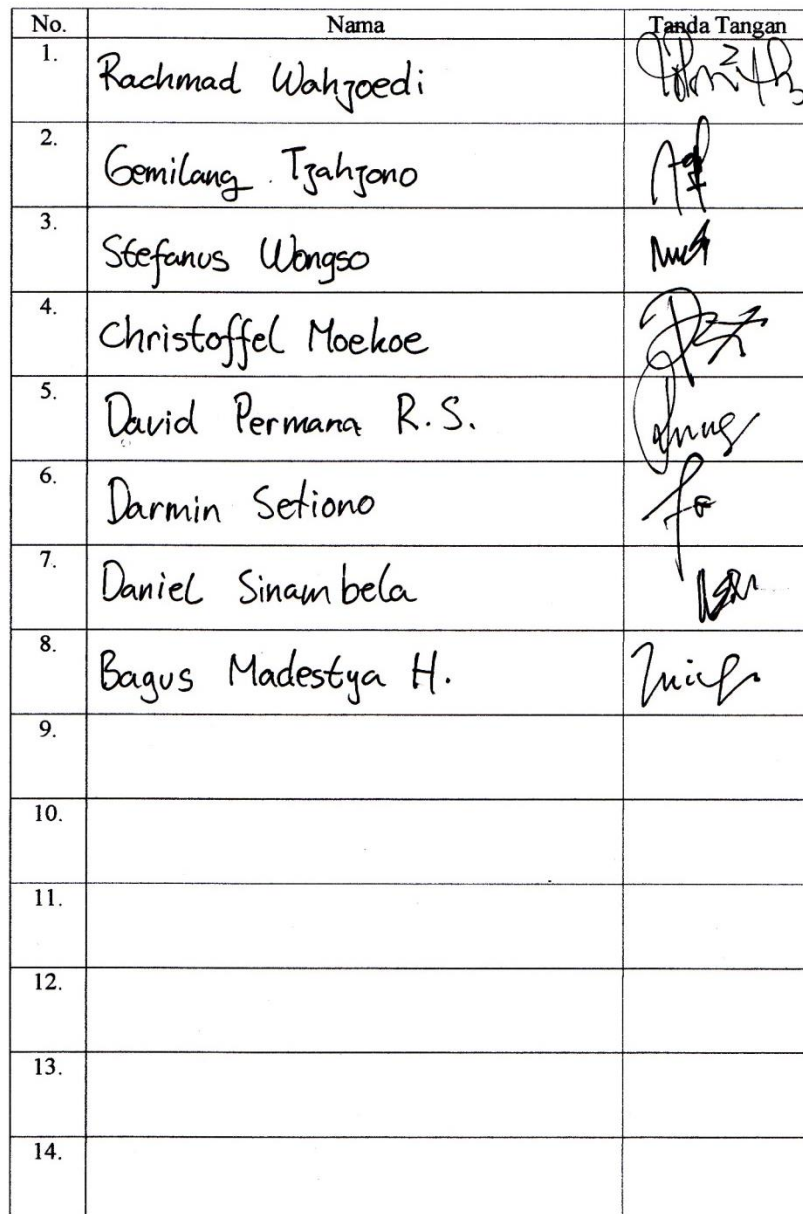 No. Nama Tanda Tangan
1. Rachmad Wahjoedi
2. Gemilang Tjahjono
3. Stefanus Wongso
4. Christoffel Moekoe
5. David Permana R.S.
6. Darmin Setiono
7. Daniel Sinambela
8. Bagus Madestya H.
9.
10.
11.
12.
13.
14.